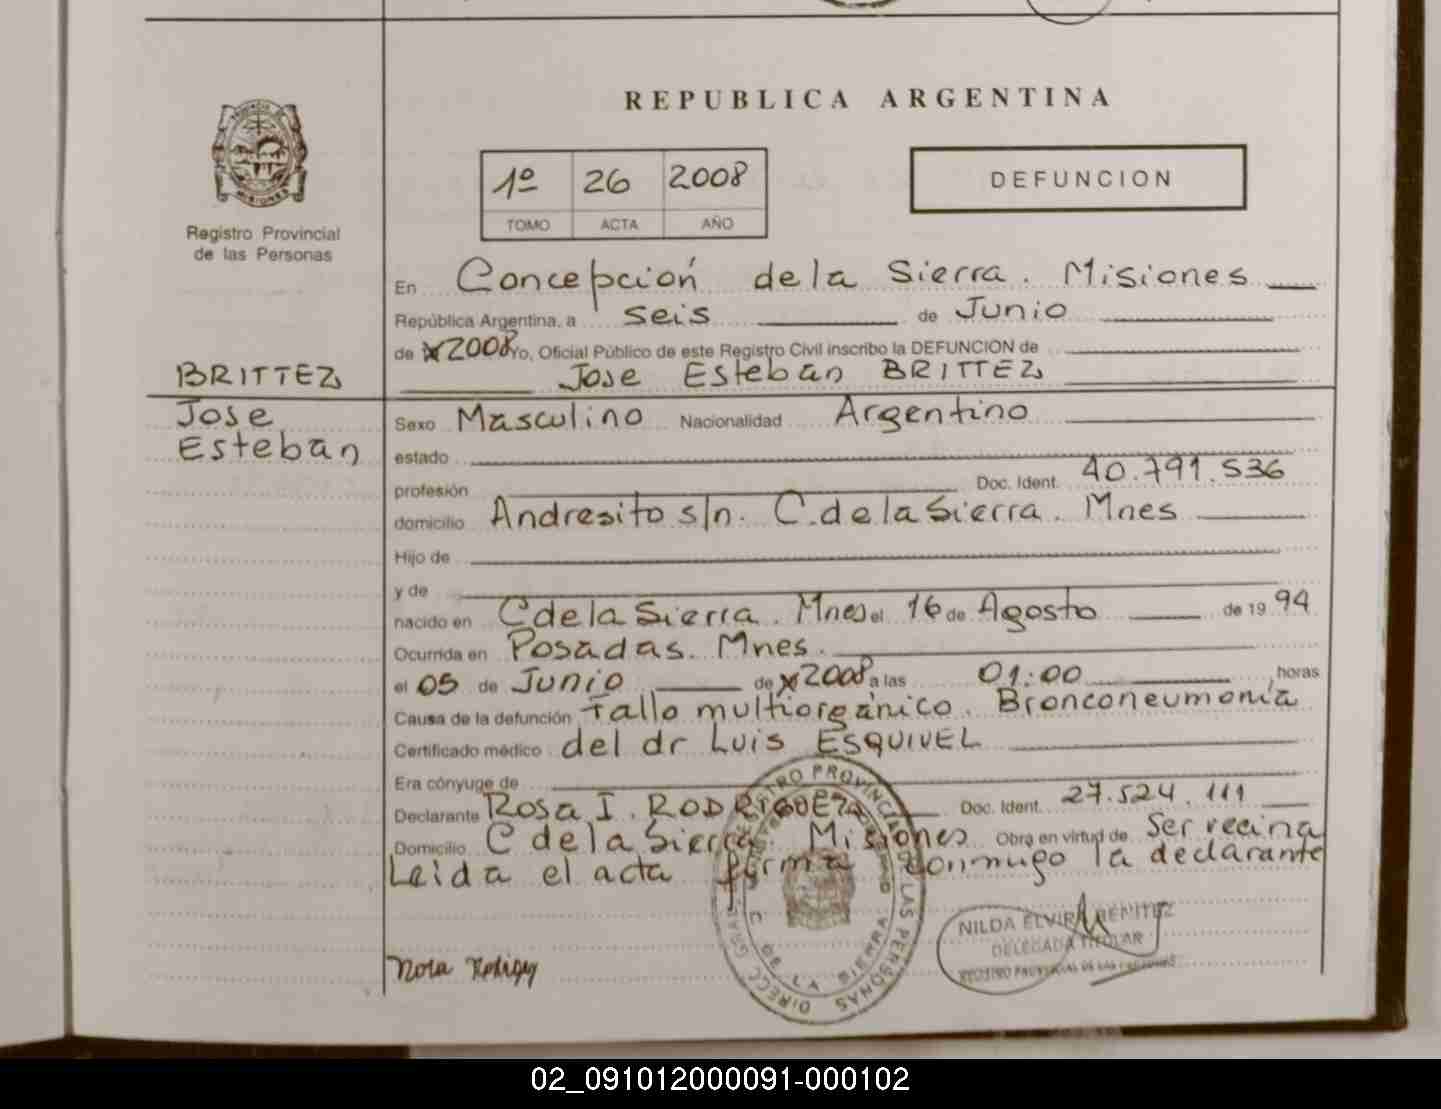 REPUBLICA ARGENTINA
1º 26 2008
TOMO ACTA AÑO
DEFUNCION
Registro Provincial
de las Personas
En Concepción de la Sierra. Misiones
República Argentina, a seis de Junio
de 2008 Yo, Oficial Público de este Registro Civil inscribo la DEFUNCION de
Jose Esteban BRITTEZ
BRITTEZ
Jose
Esteban
Sexo Masculino Nacionalidad Argentino
estado
profesión Doc. Ident. 40.791.536
domicilio Andresito s/n. C. de la Sierra. Mnes
Hijo de
y de
nacido en C de la Sierra. Mnes el 16 de Agosto de 1994
Ocurrida en Posadas. Mnes.
el 05 de Junio de 2008 a las 01:00 horas
Causa de la defunción Fallo multiorgánico. Bronconeumonía
Certificado médico del dr Luis ESQUIVEL
Era cónyuge de
Declarante Rosa I. RODRIGUEZ Doc. Ident. 27.524.111
Domicilio C de la Sierra. Misiones Obra en virtud de Ser vecina
Leida el acta firma conmugo la declarante
DIRECC GRAL REGISTRO PROVINCIAL DE LAS PERSONAS
C DE LA SIERRA
NILDA ELVIRA BENITEZ
DELEGADA TITULAR
REGISTRO PROVINCIAL DE LAS PERSONAS
02_091012000091-000102